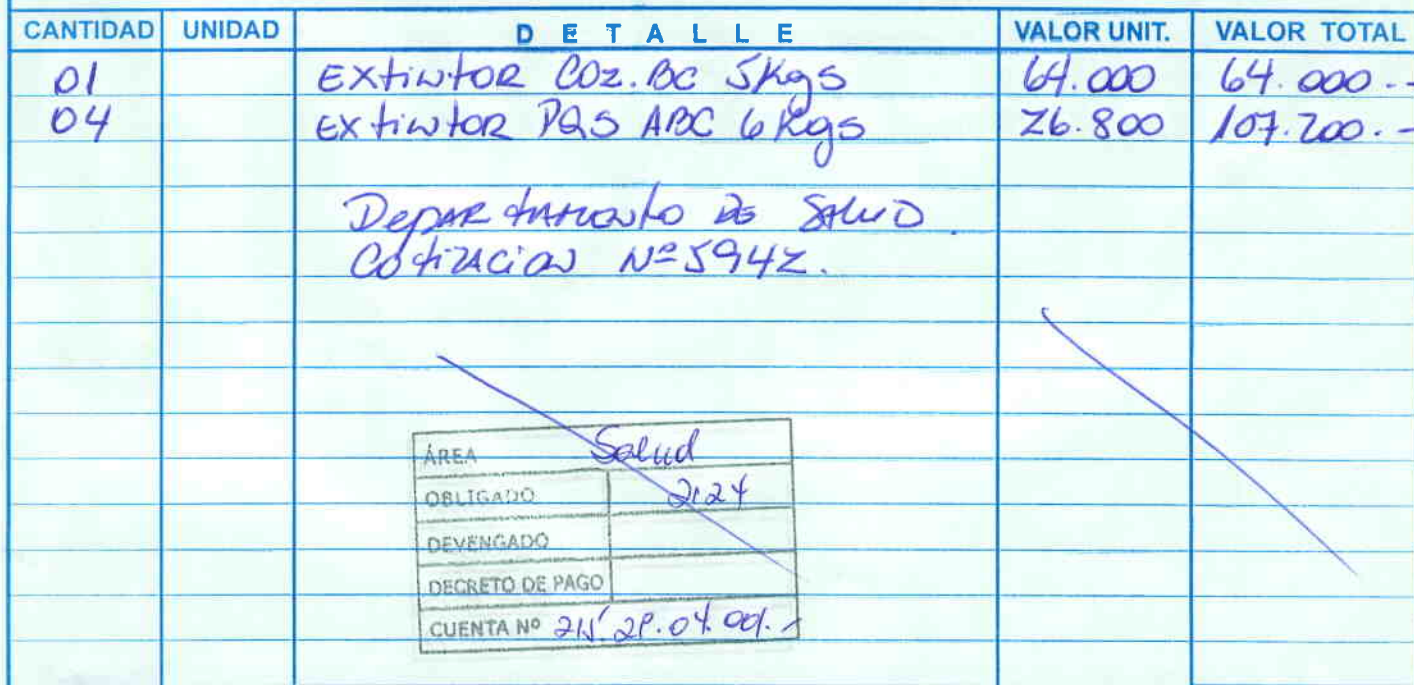 CANTIDAD UNIDAD DETALLE VALOR UNIT. VALOR TOTAL
01 Extintor CO2.BC 5Kgs 64.000 64.000.-
04 Extintor PQS ABC 6Kgs 26.800 107.200.-
Departamento de Salud.
Cotizacion Nº 5942.
ÁREA Salud
OBLIGADO
DEVENGADO
DECRETO DE PAGO
CUENTA Nº